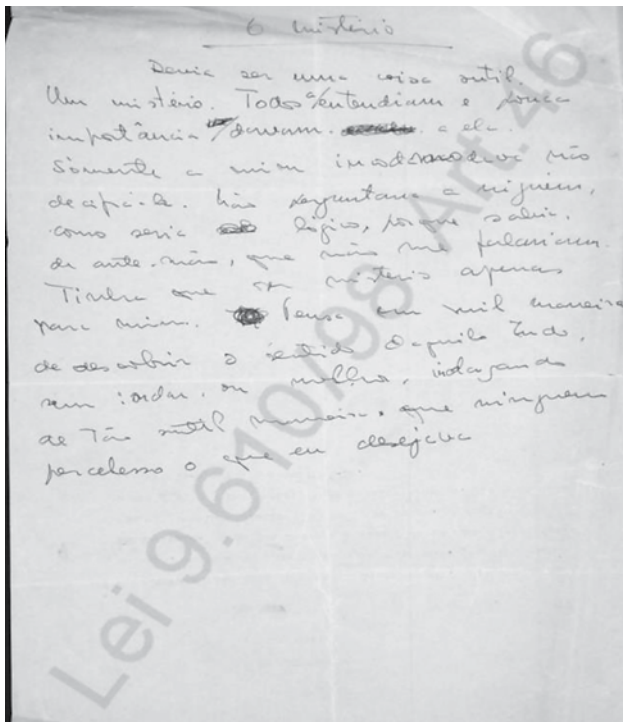 O mistério
Devia ser uma coisa sutil.
Um mistério. Todos a entendiam e pouca
importância davam a ela.
Sòmente a mim incomodava não
decifrá-la. Não perguntava a niguém,
como seria lógico, porque sabia,
de ante-mão, que não me falariam.
Tinha que ser mistério apenas
para mim. Pensa em mil maneira
de descobrir o sentido daquilo tudo,
sem indagar, ou melhor, indagando
de tão sutil maneira, que ninguem
percebesse o que eu desejava
Lei 9.610/98 Art.46